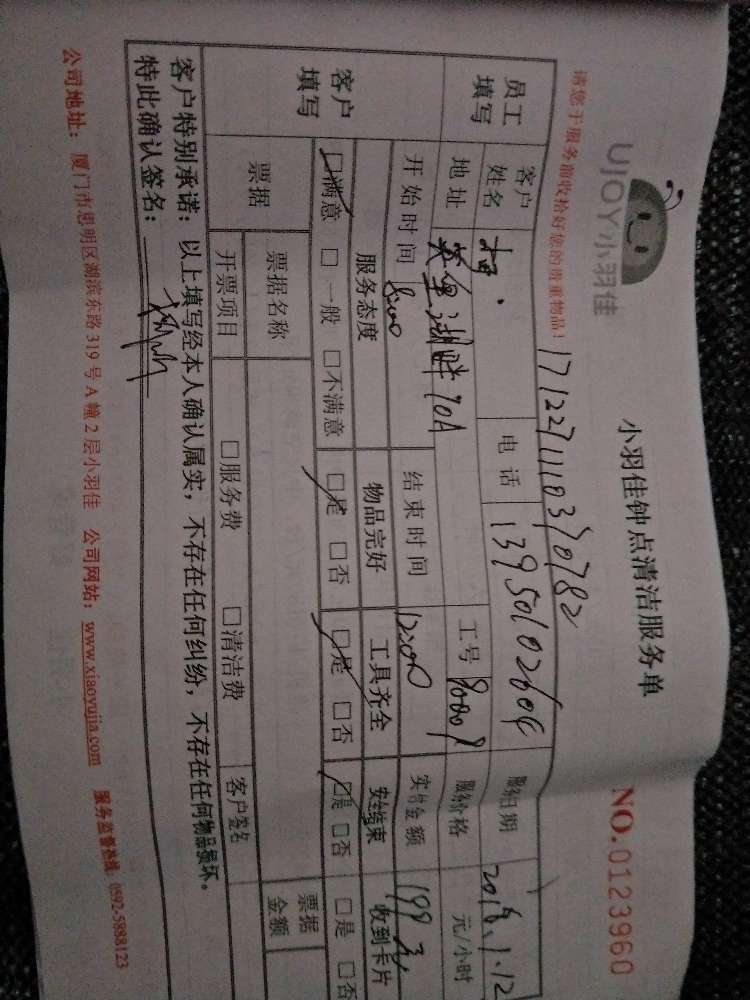 UJOY小羽佳
小羽佳钟点清洁服务单
NO.0123960
请您于服务前收拾好您的贵重物品!
员工填写 客户姓名 电话 13950102604 服务日期 2018.1.12
地址 湖畔70A 工号 服务价格 元/小时
开始时间 8:00 结束时间 12:00 实付金额 199元
客户填写 服务态度 物品完好 工具齐全 安全结束 收到卡片
□满意 □一般 □不满意 □是 □否 □是 □否 □是 □否 □是 □否
票据 票据名称 票据金额
开票项目 □服务费 □清洁费 客户签名
客户特别承诺:以上填写经本人确认属实,不存在任何纠纷,不存在任何物品损坏。
特此确认签名:
公司地址:厦门市思明区湖滨东路319号A幢2层小羽佳 公司网站:www.xiaoyujia.com 服务监督热线:0592-5888123